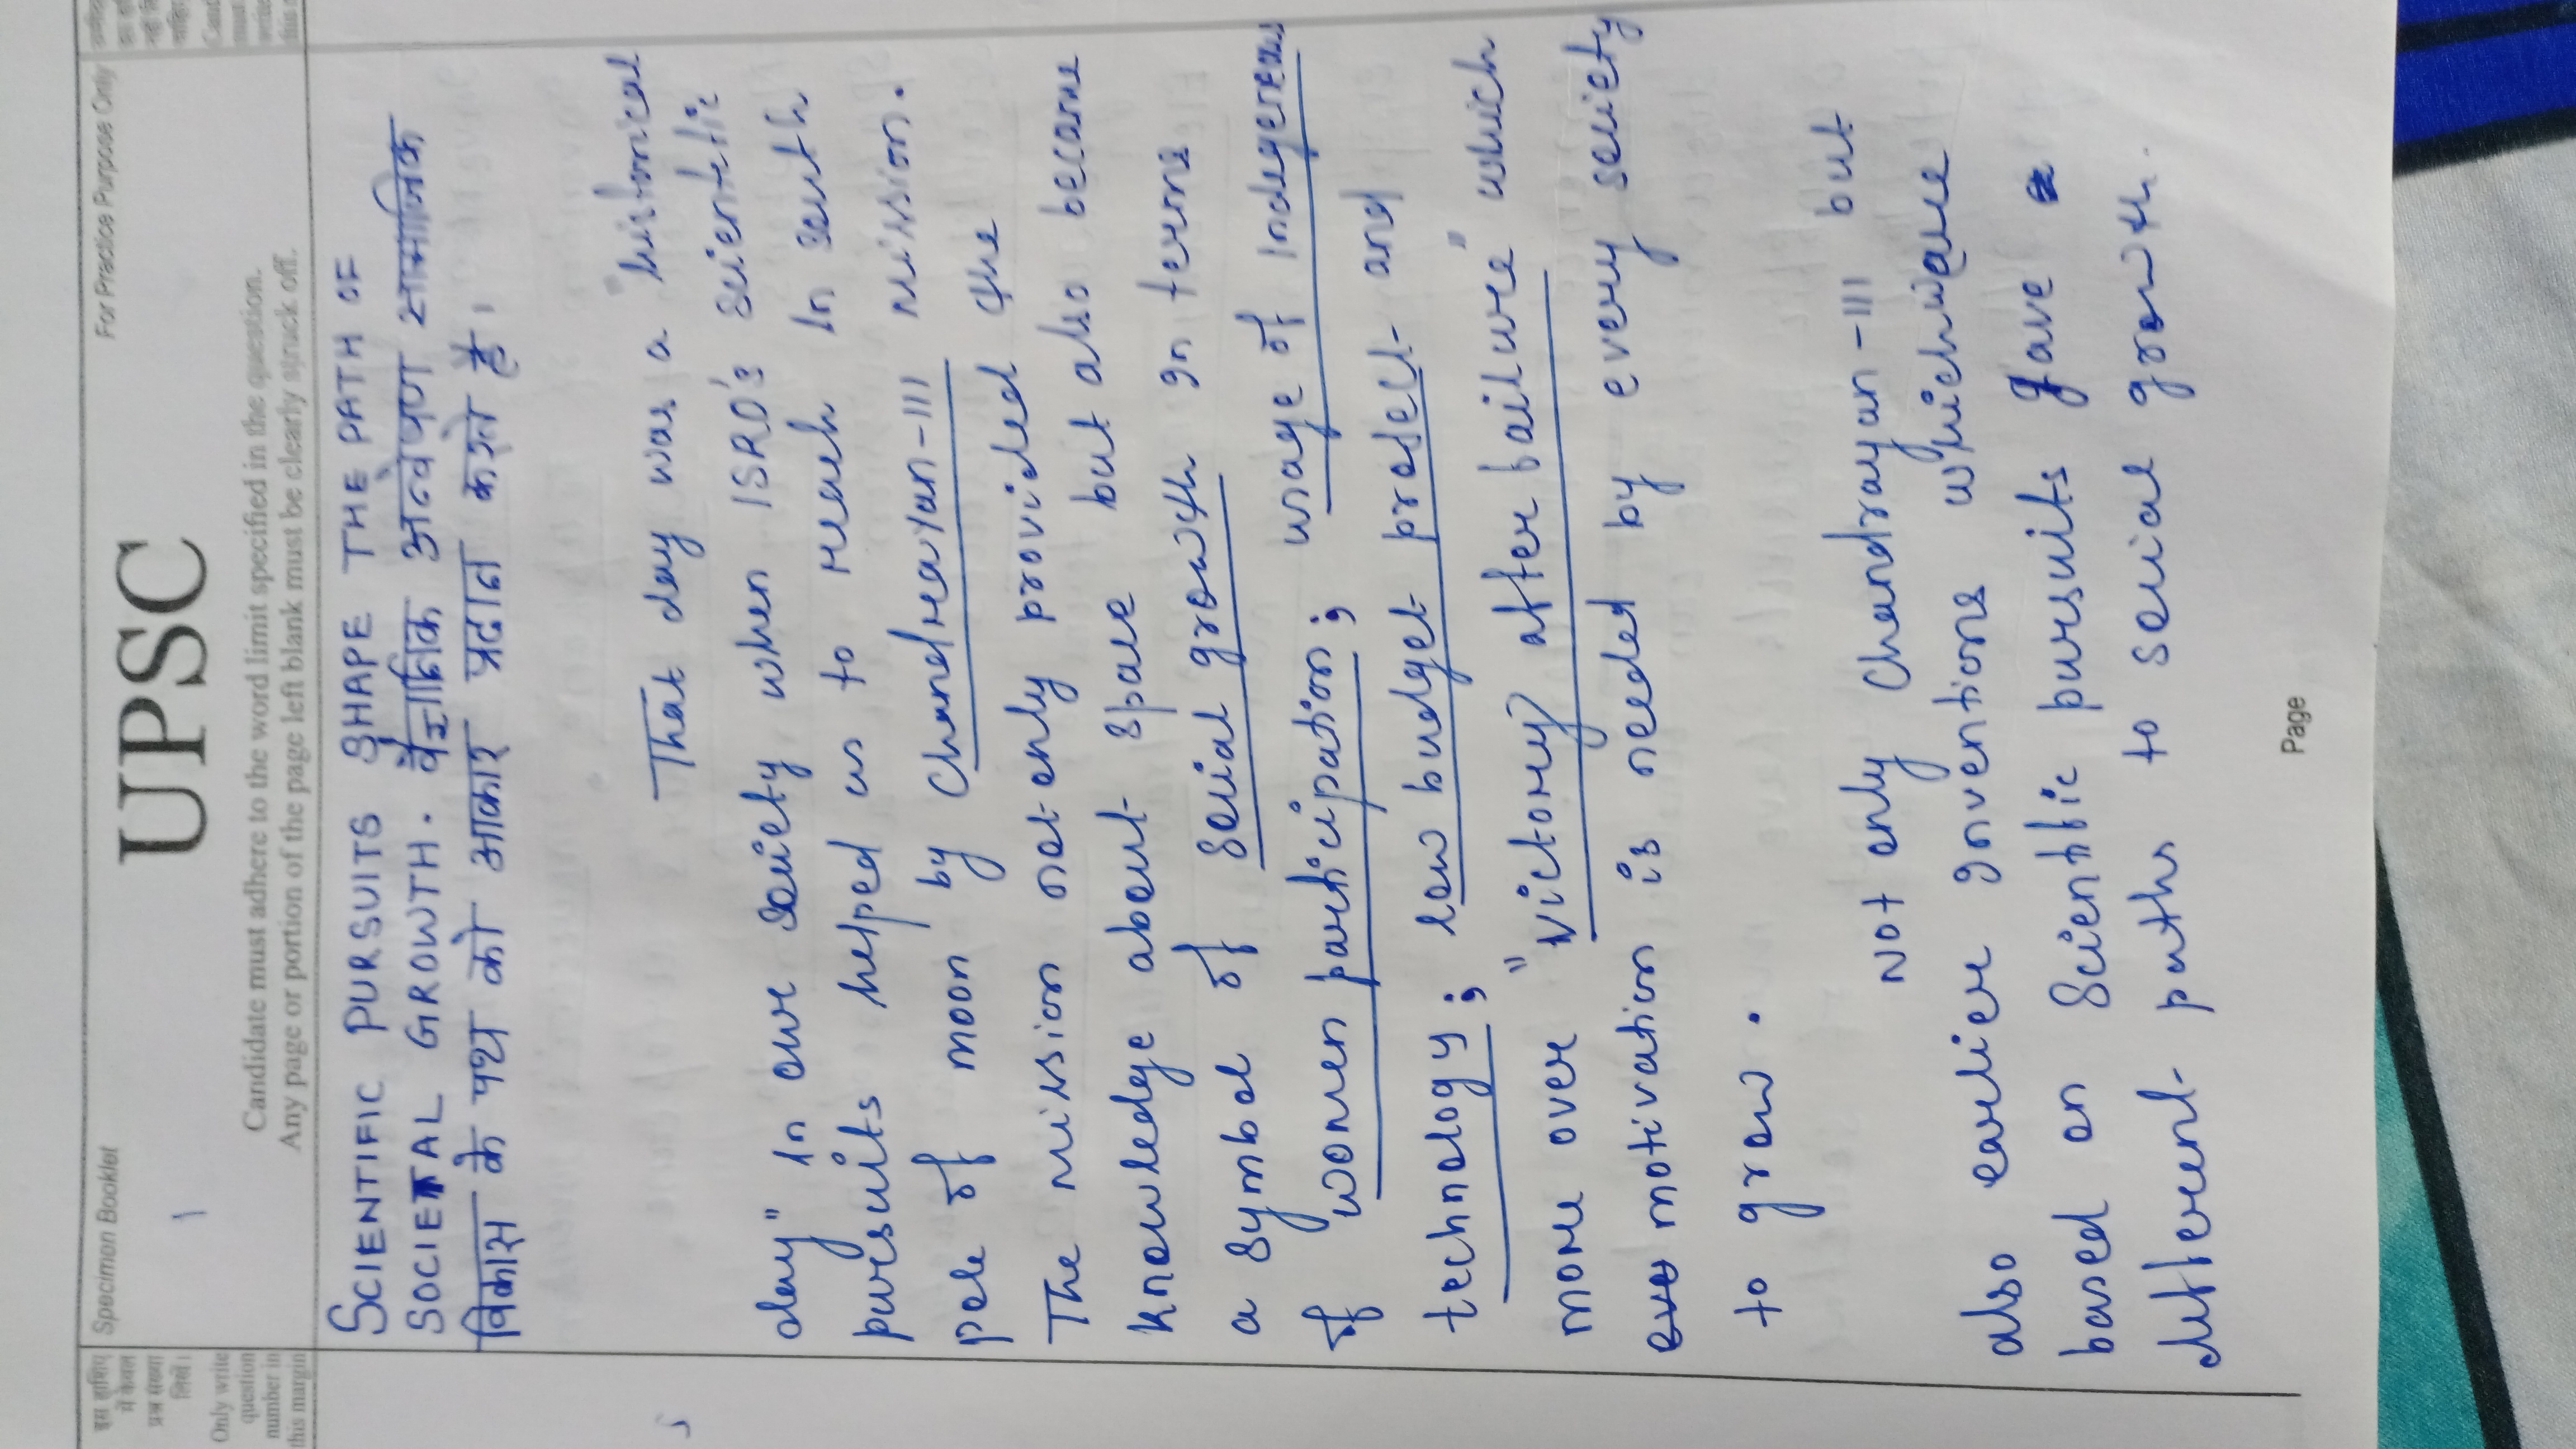 Specimen Booklet
UPSC
For Practice Purpose Only
1
Candidate must adhere to the word limit specified in the question.
Any page or portion of the page left blank must be clearly struck off.
Only write
question
number in
this margin
SCIENTIFIC PURSUITS SHAPE THE PATH OF
SOCIETAL GROWTH. वैज्ञानिक अन्वेषण सामाजिक
विकास के पथ को आकार प्रदान करते हैं।
That day was a "historical
day" in our society when ISRO's scientetic
pursuits helped us to reach in south
pole of moon by Chandrayan-III mission.
The mission not only provided the
knowledge about space but also became
a symbol of social growth in terms
of women participation; usage of indegeneous
technology; low budget project and
more over "victory after failure" which
motivation is needed by every society
to grow.
Not only Chandrayan-III but
also earlier inventions which were
based on Scientific pursuits gave
different paths to social growth.
Page